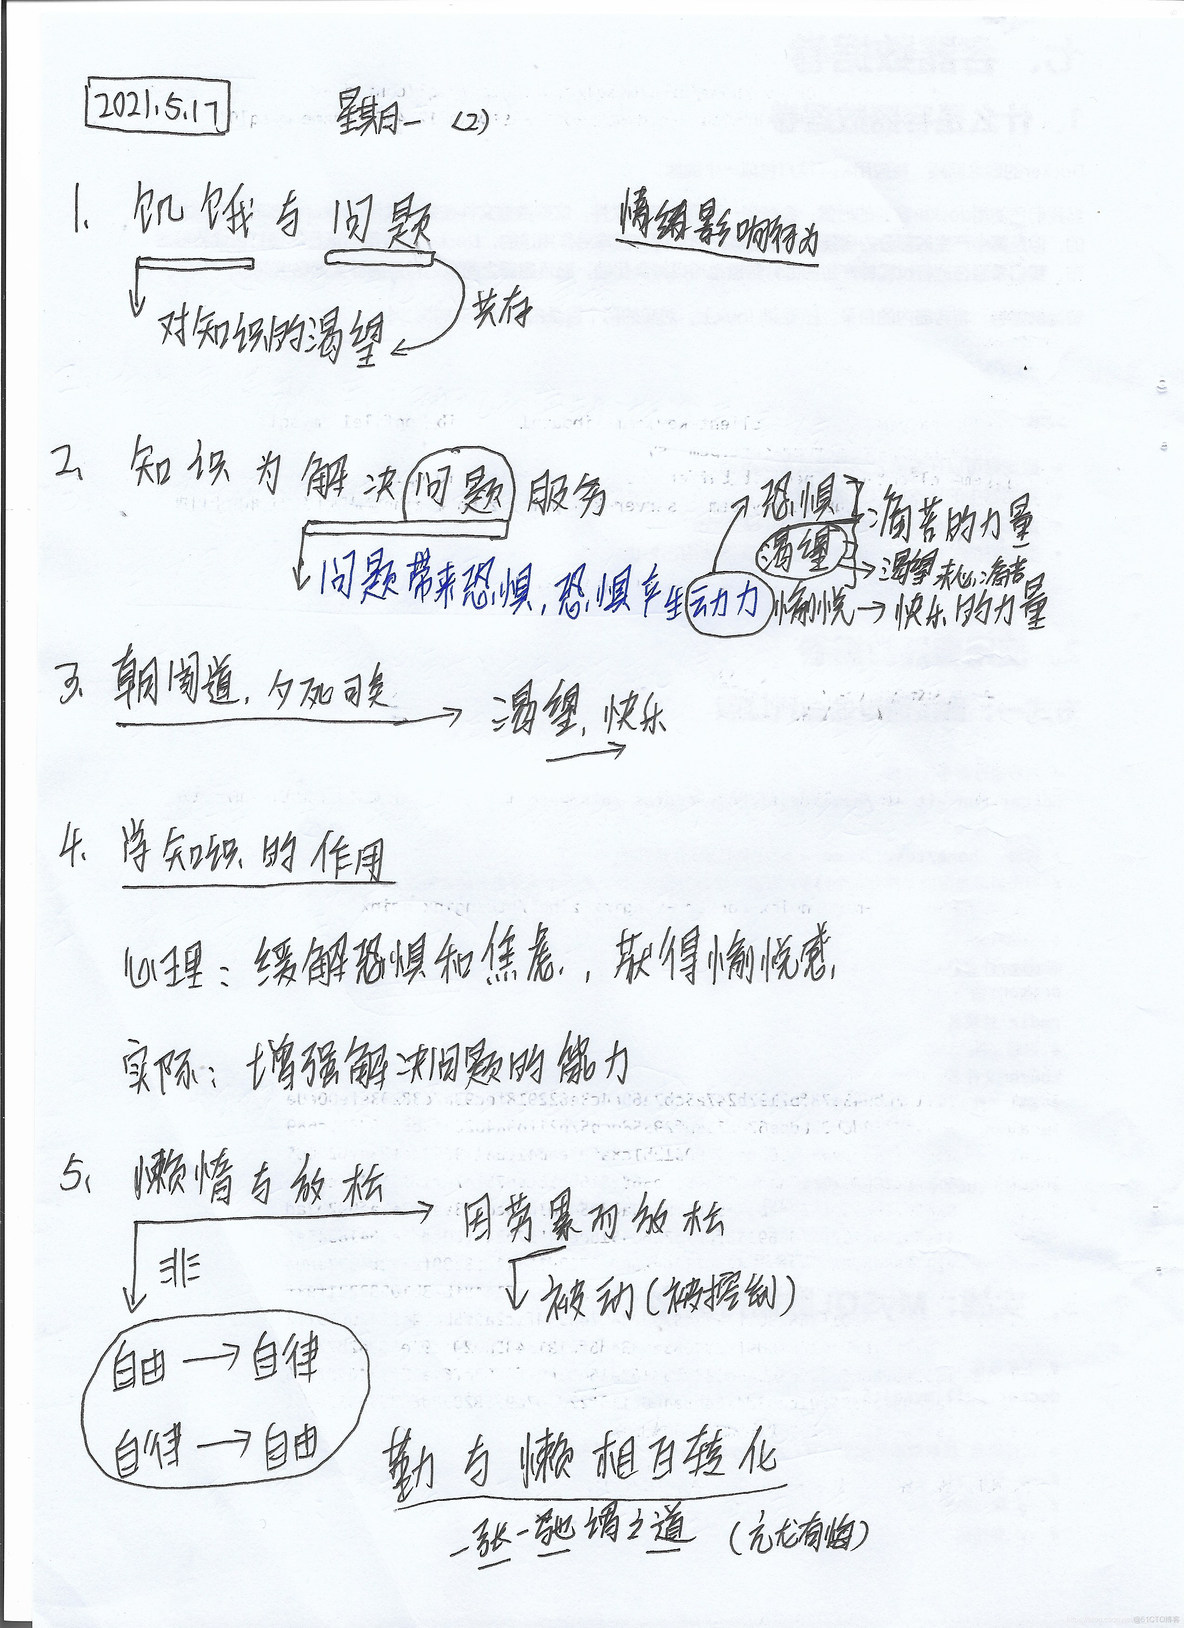 2021.5.17
星期一 (2)
1. 饥饿与问题
情绪影响行为
对知识的渴望
共存
2. 知识为解决问题服务
恐惧
渴望
痛苦的力量
渴望 痛苦
问题带来恐惧,恐惧产生动力
愉悦→快乐的力量
3. 朝闻道,夕死可矣
渴望,快乐
4. 学知识的作用
心理:缓解恐惧和焦虑,获得愉悦感,
实际:增强解决问题的能力
5. 懒惰与放松
因劳累而放松
非
被动(被控制)
自由→自律
自律→自由
勤与懒相互转化
一张一弛谓之道 (亢龙有悔)
@51CTO博客